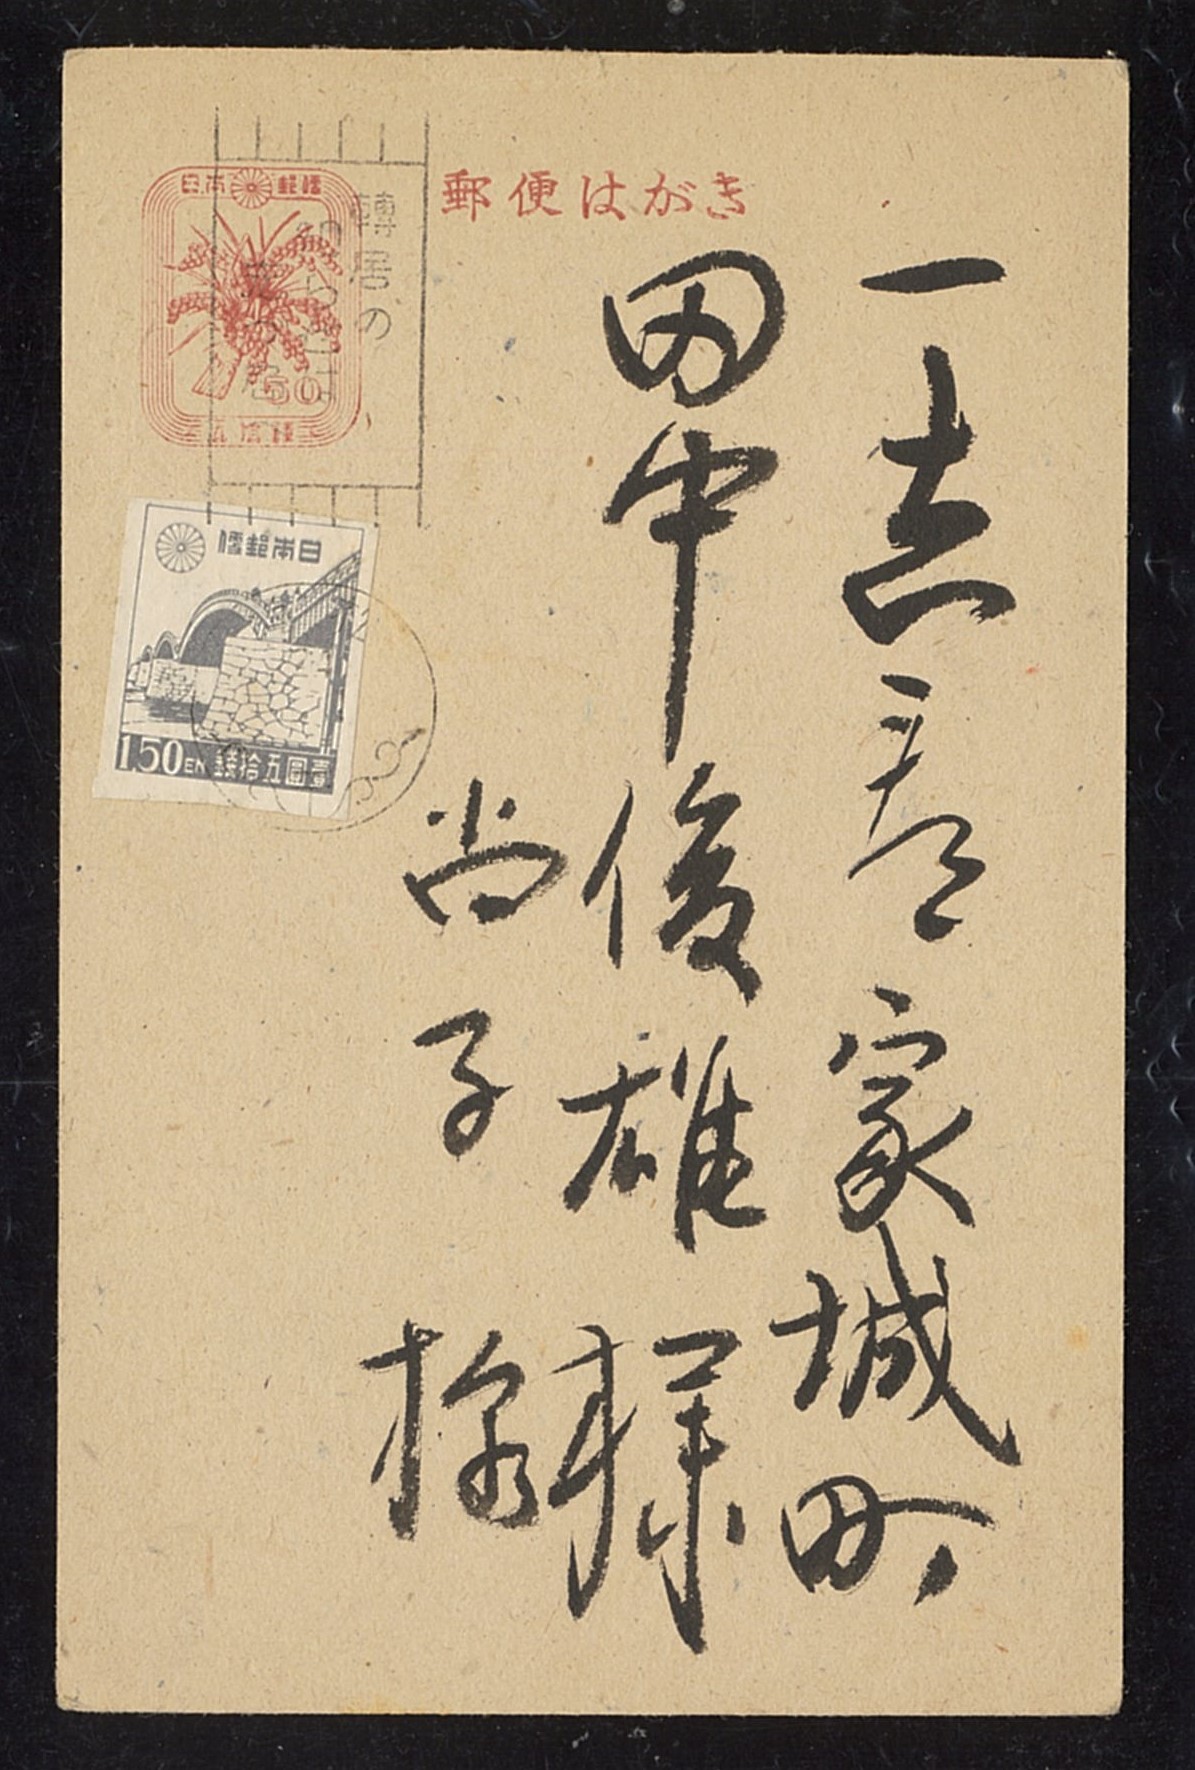 郵便はがき
日本郵便
50
五拾錢
轉居の
日本郵便
1.50 EN 壹圓五拾錢
一志郡家城町
田中俊雄様
尚子様